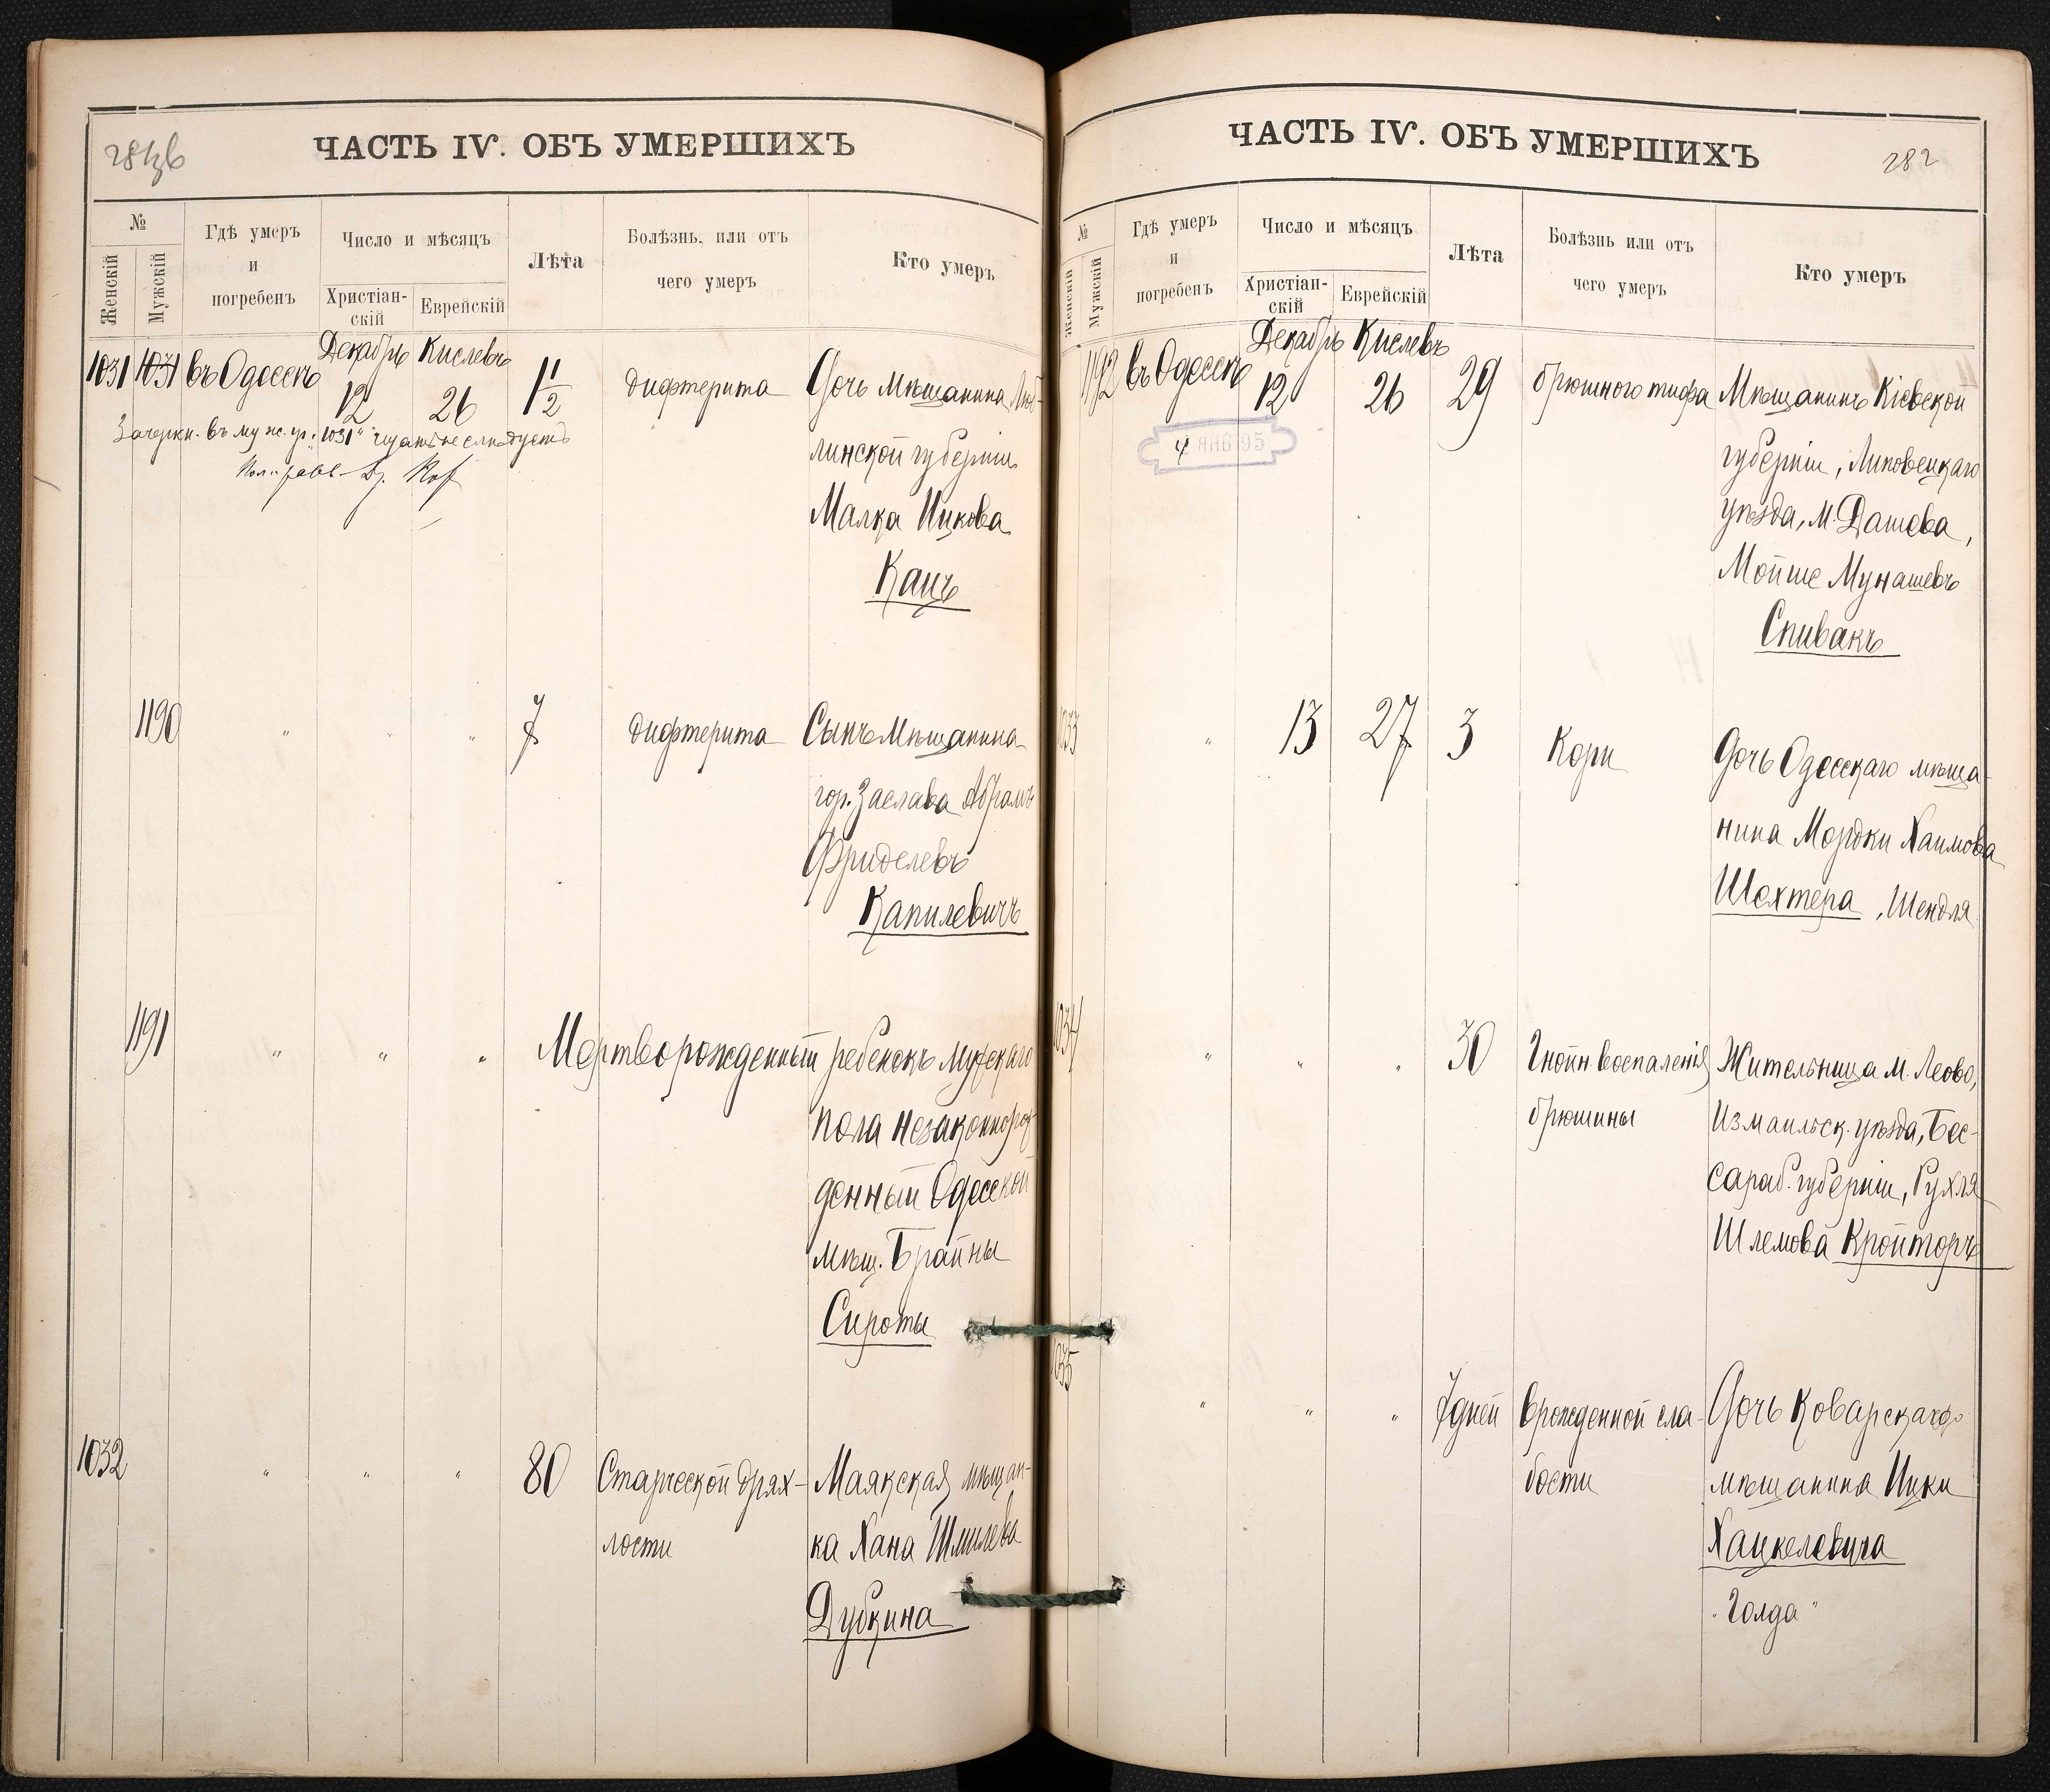 281 об
ЧАСТЬ IV. ОБЪ УМЕРШИХЪ
№
Женскій
Мужскій
Гдѣ умеръ
и
погребенъ
Число и мѣсяцъ
Христіан-
скій
Еврейскій
Лѣта
Болѣзнь, или отъ
чего умеръ
Кто умеръ
Декабрь Кислевъ
1031 1031 въ Одессѣ 12 26 1 1/2 дифтерита Дочь мѣщанина Люб-
линской губерніи
Малка Ицкова
Кацъ
Зачеркн. въ муж. гр. "1031" читать не слѣдуетъ
1190 " " " 7 дифтерита Сынъ мѣщанина
гор. Заслава Абрамъ
Фриделевъ
Капилевичъ
1191 " " " Мертворожденный ребенокъ мужскаго
пола незаконнорож-
денный Одесской
мѣщ. Брайны
Сироты
1032 " " " 80 Старческой дрях- Маякская мѣщан-
лости ка Хана Шмилева
Дубкина
ЧАСТЬ IV. ОБЪ УМЕРШИХЪ
282
№
Женскій
Мужскій
Гдѣ умеръ
и
погребенъ
Число и мѣсяцъ
Христіан-
скій
Еврейскій
Лѣта
Болѣзнь или отъ
чего умеръ
Кто умеръ
Декабрь Кислевъ
1192 въ Одессѣ 12 26 29 брюшного тифа Мѣщанинъ Кіевской
4 ЯНВ 95
губерніи, Липовецкаго
уѣзда, м. Дашева,
Мойше Мунашевъ
Спивакъ
1033 " 13 27 3 Кори Дочь Одесскаго мѣща-
нина Мордки Хаимова
Шехтера, Шендля
1034 " " " 30 Гнойн. воспаленія Жительница м. Леово,
брюшины Измаильск. уѣзда, Бес-
сараб. губерніи, Рухля
Шлемова Кройторъ
1035 " " " 7 дней врожденной сла- Дочь Коварскаго
бости мѣщанина Ицки
Хацкелевича
"Голда"